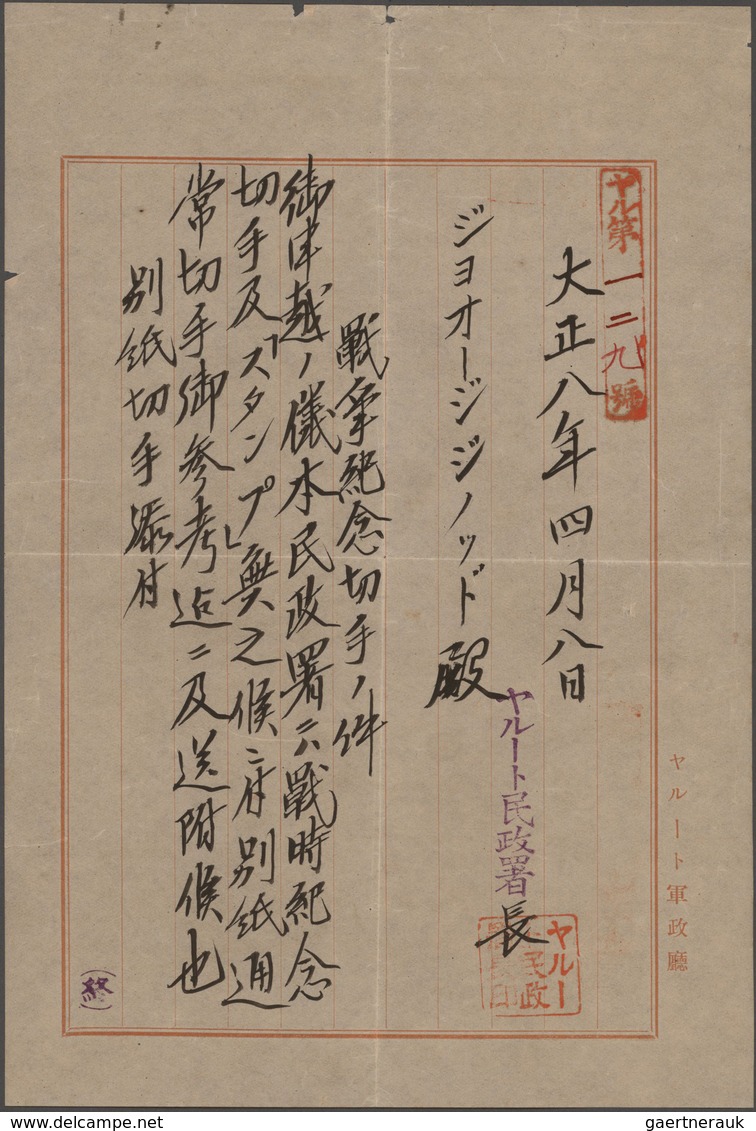 ヤル第一二九號
大正八年四月八日
ヤルート民政署長
ジヨオージジノッド殿
戰爭紀念切手ノ件
御申越ノ儀本民政署ニハ戰時紀念
切手及「スタンプ」無之候ニ付別紙通
常切手御参考迠ニ及送附候也
別紙切手添付
(終)
ヤルート軍政廳
gaertnerauk @ delcampe.net